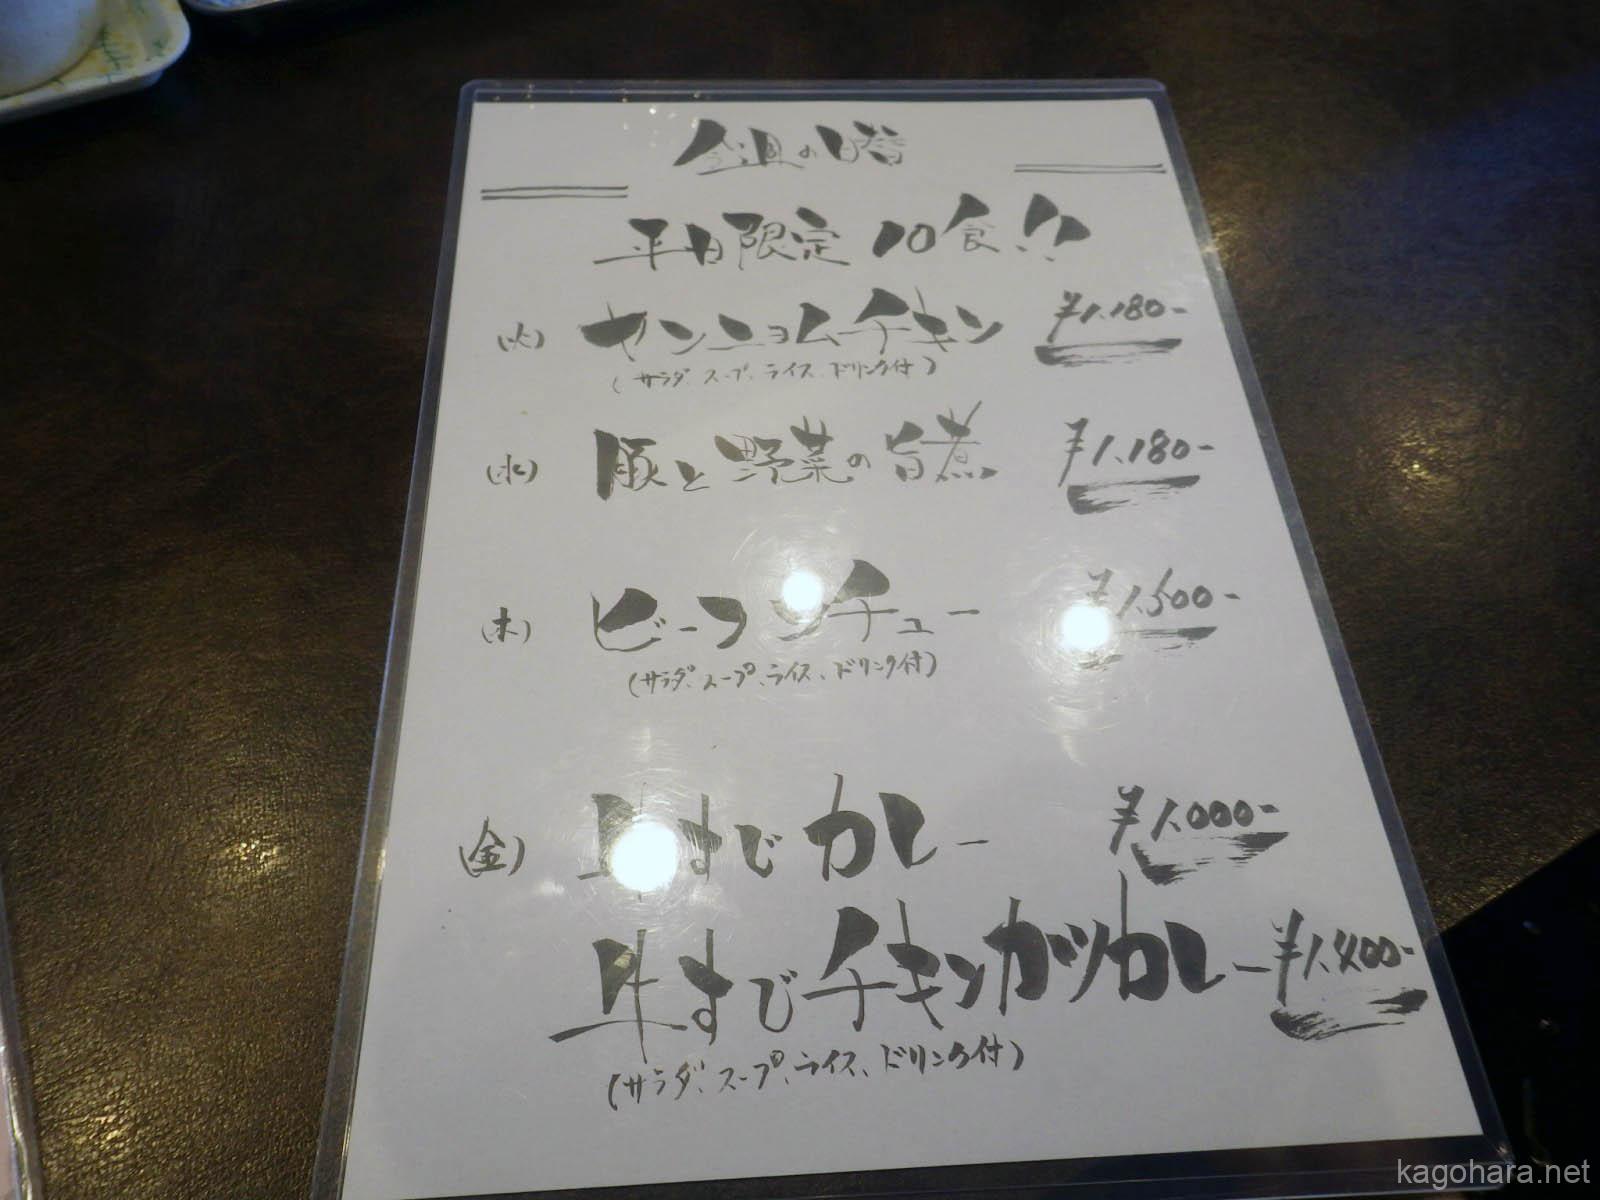 今週の日替
平日限定 10食!!
(火) ヤンニョムチキン ¥1.180-
(サラダ、スープ、ライス、ドリンク付)
(水) 豚と野菜の旨煮 ¥1.180-
(木) ビーフシチュー
(サラダ、スープ、ライス、ドリンク付)
(金) 牛すじカレー ¥1.000-
牛すじチキンカツカレー ¥1.400-
(サラダ、スープ、ライス、ドリンク付)
kagohara.net